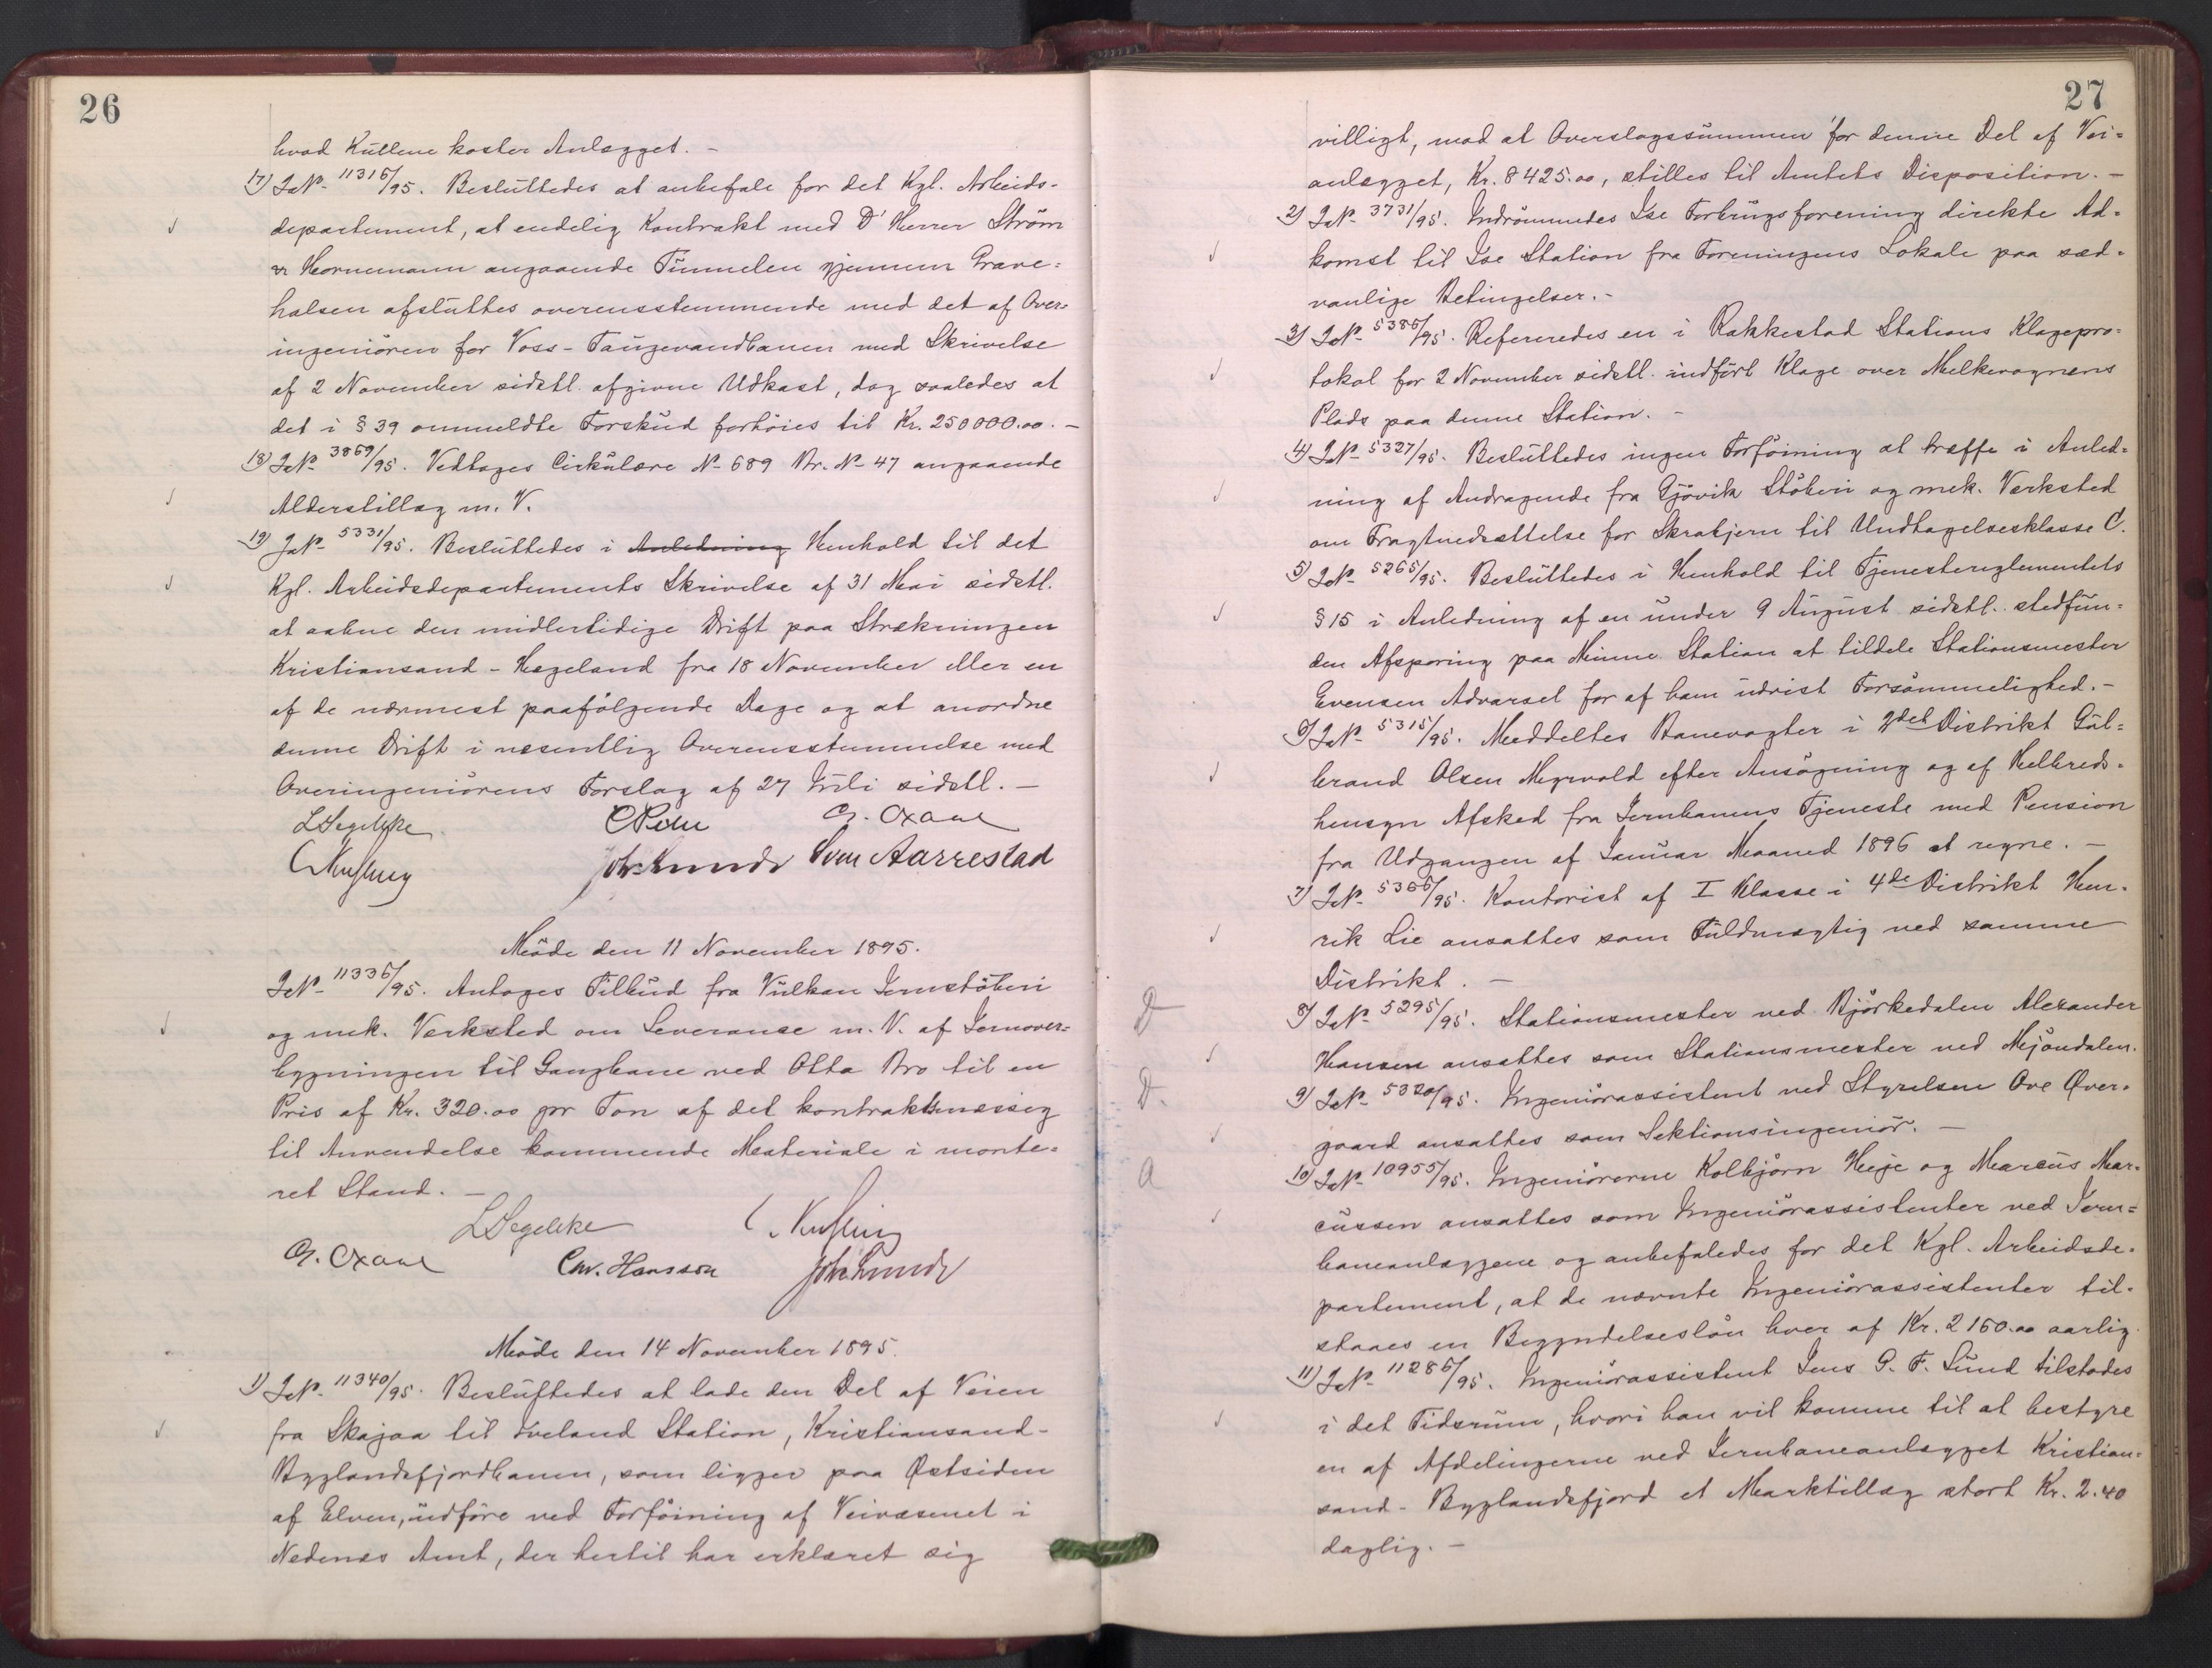 26
hvad Kullene koster Anlægget. -
17) J.N. 11316/95. Besluttedes at anbefale for det Kgl. Arbeids-
departement, at endelig Kontrakt med D' Herrer Strøm
& Hornemann angaaende Tunnelen gjennem Grave=
halsen afsluttes overensstemmende med det af Over=
ingeniøren for Voss-Taugevandbanen med Skrivelse
af 2 November sidstl. afgivne Udkast, dog saaledes at
det i § 39 ommeldte Forskud forhøies til Kr. 250000.00. -
18) J.N. 3869/95. Vedtoges Cirkulære N. 689 Br. N. 47 angaaende
Alderstillæg m. V.
19) J.N. 5331/95. Besluttedes i Anledning Henhold til det
Kgl. Arbeidsdepartements Skrivelse af 31 Mai sidstl.
at aabne den midlertidige Drift paa Strækningen
Kristiansand - Hægeland fra 18 November eller en
af de nærmest paafølgende Dage og at anordne
denne Drift i væsentlig Overensstemmelse med
Overingeniørens Forslag af 27 Juli sidstl. -
LSegelcke CPihl G. Oxaal
Joh. Lunde Sven Aarrestad
Møde den 11 November 1895.
J.N. 11336/95. Antoges Tilbud fra Vulkan Jernstøberi
og mek. Verksted om Leveranse m. V. af Jernover=
bygningen til Gangbane ved Otta Bro til en
Pris af Kr. 320.00 pr Ton af det kontraktmæssig
til Anvendelse kommende Materiale i monte=
ret Stand. -
LSegelcke
G. Oxaal Chr. Hansson Joh. Lunde
Møde den 14 November 1895.
1) J.N. 11340/95. Besluttedes at lade den Del af Veien
fra Skajaa til Iveland Station, Kristiansand-
Byglandsfjordbanen, som ligger paa Østsiden
af Elven, udføre ved Forføining af Veivæsenet i
Nedenæs Amt, der hertil har erklæret sig
27
villigt, mod at Overslagssummen for denne Del af Vei=
anlægget, Kr. 8425.00, stilles til Amtets Disposition. -
2) J.N. 3731/95. Indrømmedes Ise Forbrugsforening direkte Ad=
komst til Ise Station fra Foreningens Lokale paa sæd=
vanlige Betingelser. -
3) J.N. 5386/95. Refereredes en i Rakkestad Stations Klagepro=
tokol for 2 November sidstl. indført Klage over Melkevognens
Plads paa denne Station. -
4) J.N. 5327/95. Besluttedes ingen Forføining at træffe i Anled=
ning af Andragende fra Gjøvik Støberi og mek. Verksted
om Fragtnedsættelse for Skrabjern til Undtagelsesklasse C.
5) J.N. 5265/95. Besluttedes i Henhold til Tjenestereglementets
§ 15 i Anledning af en under 9 August sidstl. stedfun=
den Afsporing paa Minne Station at tildele Stationsmester
Evensen Advarsel for af ham udvist Forsømmelighed. -
6) J.N. 5315/95. Meddeltes Banevogter i 2det Distrikt Gul=
brand Olsen Myrvold efter Ansøgning og af Helbreds=
hensyn Afsked fra Jernbanens Tjeneste med Pension
fra Udgangen af Januar Maaned 1896 at regne. -
7) J.N. 5366/95. Kontorist af I Klasse i 4de Distrikt Hen=
rik Lie ansattes som Fuldmægtig ved samme
Distrikt. -
D
8) J.N. 5295/95. Stationsmester ved Bjørkedalen Alexander
Hansen ansattes som Stationsmester ved Mjøndalen.
D.
9) J.N. 5320/95. Ingeniørassistent ved Styrelsen Ove Øver=
gaard ansattes som Sektionsingeniør. -
A
10) J.N. 10955/95. Ingeniørerne Kolbjørn Heje og Marcus Mar=
cussen ansattes som Ingeniørassistenter ved Jern=
baneanlæggene og anbefaledes for det Kgl. Arbeidsde=
partement, at de nævnte Ingeniørassistenter til=
staaes en Begyndelsesløn hver af Kr. 2160.00 aarlig.
11) J.N. 11286/95. Ingeniørassistent Jens G. F. Lund tilstodes
i det Tidsrum, hvori han vil komme til at bestyre
en af Afdelingerne ved Jernbaneanlægget Kristian=
sand - Byglandsfjord et Marktillæg stort Kr. 2.40
daglig. -